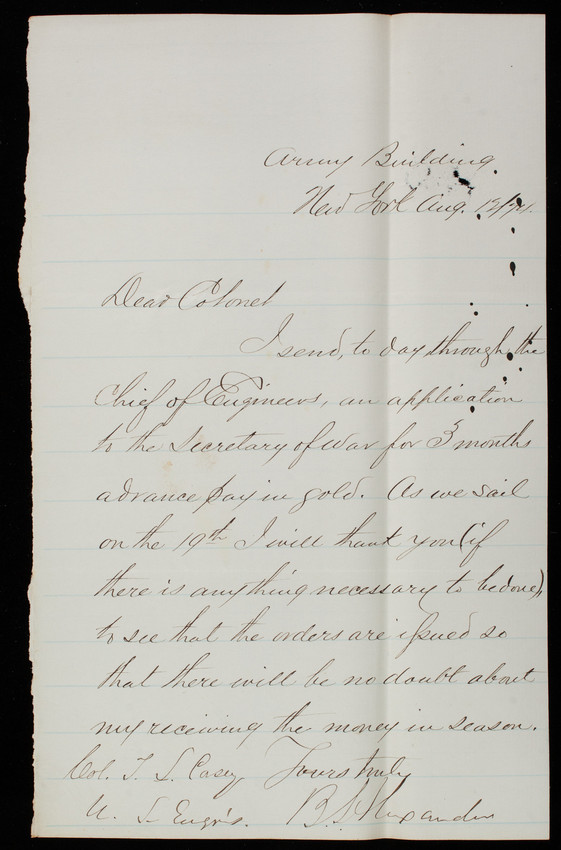 Army Building
New York Aug. 12/74.
Dear Colonel
I send, to day through the
Chief of Engineers, an application
to the Secretary of War for 3 months
advance pay in gold. As we sail
on the 19th I will thank you (if
there is anything necessary to be done),
to see that the orders are issued so
that there will be no doubt about
my receiving the money in season.
Yours truly
B. S. Alexander
Col. T. L. Casey
U. S. Engrs.